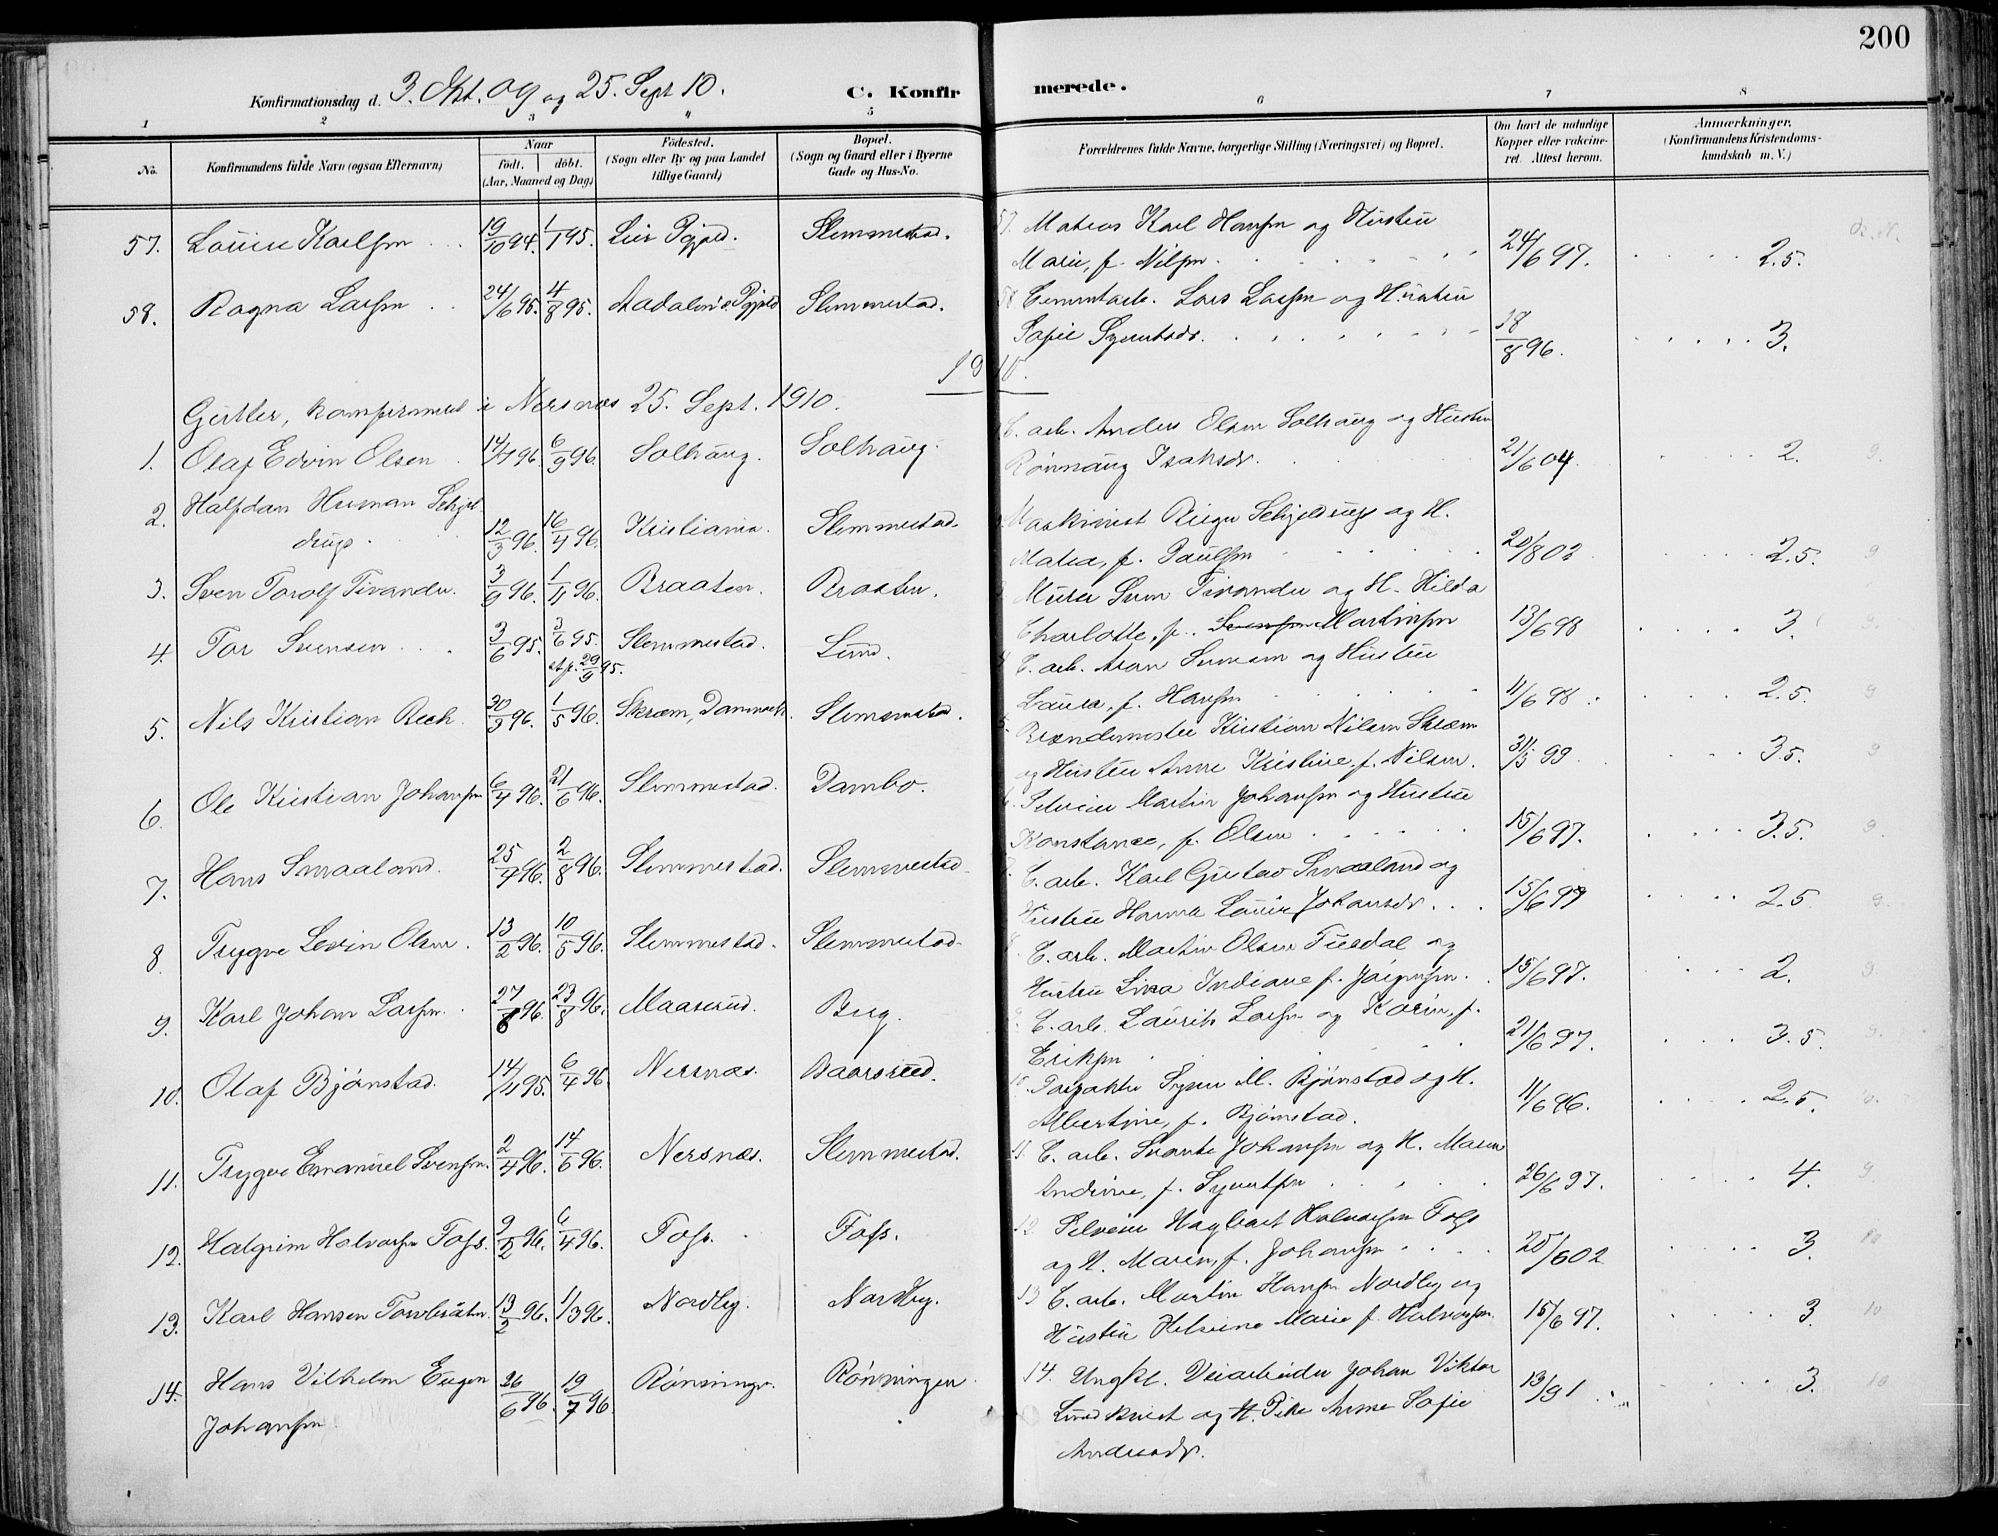 200
Konfirmationsdag d. 3. Okt. 09 og 25. Sept 10. C. Konfirmerede.
1 2 3 4 5 6 7 8
No. Konfirmandens fulde Navn (ogsaa Efternavn) Naar født. døbt. (Aar, Maaned og Dag) Fødested. (Sogn eller By og paa Landet tillige Gaard) Bopæl. (Sogn og Gaard eller i Byerne Gade og Hus-No.) Forældrenes fulde Navne, borgerlige Stilling (Næringsvei) og Bopæl. Om havt de naturlige Kopper eller vakcineret. Attest herom. Anmærkninger. (Konfirmandens Kristendomskundskab m. V.)
57. Karlsen 19/10 94. 1/1 95. Lier Slemmestad. 57. Mateus Karl Hansen og Hustru
Marie, f. Nilsen. 24/6 97. 2.5.
58. Ragna Larsen 24/6 95. 4/8 95. Slemmestad. 58 Cementarb. Lars Larsen og Hustru
Sofie Syvertsdr. 18/8 96. 3.
1910.
Gutter, konfirmeret i Nersnæs 25. Sept. 1910.
1. Olaf Edvin Olsen 14/7 96. 6/9 96. Solhaug. Solhaug. C. arb. Anders Olsen Solhaug og Hustru
Rønnaug Isaksdr. 21/6 04. 2.
2. Halfdan Herman Schjeldrup 12/3 96. 16/4 96. Kristiania. Slemmestad. Maskinist Schjeldrup og H.
Matea, f. Paulsen 20/8 02 2.5.
3. Sven Torolf Tivander. 3/3 96. 1/4 96. Braaten. Braaten. 3 Murer Sven Tivander og H. Hilda
Charlotte, f. Svensen Martinsen 13/6 98 3.
4. Tor Svensen 3/6 95. 3/6 95. 29/9 95. Slemmestad. Lund. 4 C. arb. Aron Svensen og Hustru
Laura, f. Hansen 11/6 98. 2.5.
5. Nils Kristian Bech. 30/3 96. 1/5 96. Skræm, Danmark. Slemmestad. 5. Brændemester Kristian Nilsen Skræm
og Hustru Anne Kristine, f. Nilsen. 31/5 99 3.5.
6. Ole Kristian Johansen 6/4 96. 21/6 96. Slemmestad. Dambo. 6. Selveier Martin Johansen og Hustru
Konstance, f. Olsen 15/6 97. 3.5.
7. Hans Smaaland. 25/4 96. 2/8 96. Slemmestad. Slemmestad. 7. C. arb. Karl Gustav Smaaland og
Hustru Hanna Lovise Johansdr. 15/6 99 2.5.
8. Trygve Levin Olsen. 13/2 96. 10/5 96. Slemmestad. Slemmestad. 8 C. arb. Martin Olsen og
Hustru Lina Indiane f. Jørgensen. 15/6 97. 2.
9. Karl Johan Larsen. 27/6 96. 23/8 96. Maaserud. Berg. 9. C. arb. Laurits Larsen og Karin, f.
Eriksen 21/6 97. 3.5.
10. Olaf Bjørnstad. 14/11 95. 6/4 96. Nersnæs. Baarsrud. 10. Forpakter Syver M. Bjørnstad og H.
Albertine, f. Bjørnstad. 11/6 96. 2.5.
11. Trygve Emanuel Svensen. 2/4 96. 14/6 96. Nersnæs. Slemmestad. 11. C. arb. Svante Johansen og H. Maren
Andrine, f. Syvertsen 26/6 97. 4.
12. Halgrim Halvorsen Foss. 9/2 96. 6/4 96. Foss. Foss. 12 Selveier Hagbart Halvorsen Foss
og H. Maren, f. Johansen 20/6 02 3.
13. Karl Hansen Torvbraaten 13/2 96. 1/3 96. Nordby. Nordby. 13 C. arb. Martin Hansen Nordby og
Hustru Helene Marie f. Halvorsen. 15/6 97. 3.
14. Hans Vilhelm Eugen
Johansen 26/6 96. 19/7 96. Rønningen. Rønningen 14. Ungkl. Veiarbeider Johan Viktor
Lindkvist og Pike Anne Sofie
Andreasdr. 3.